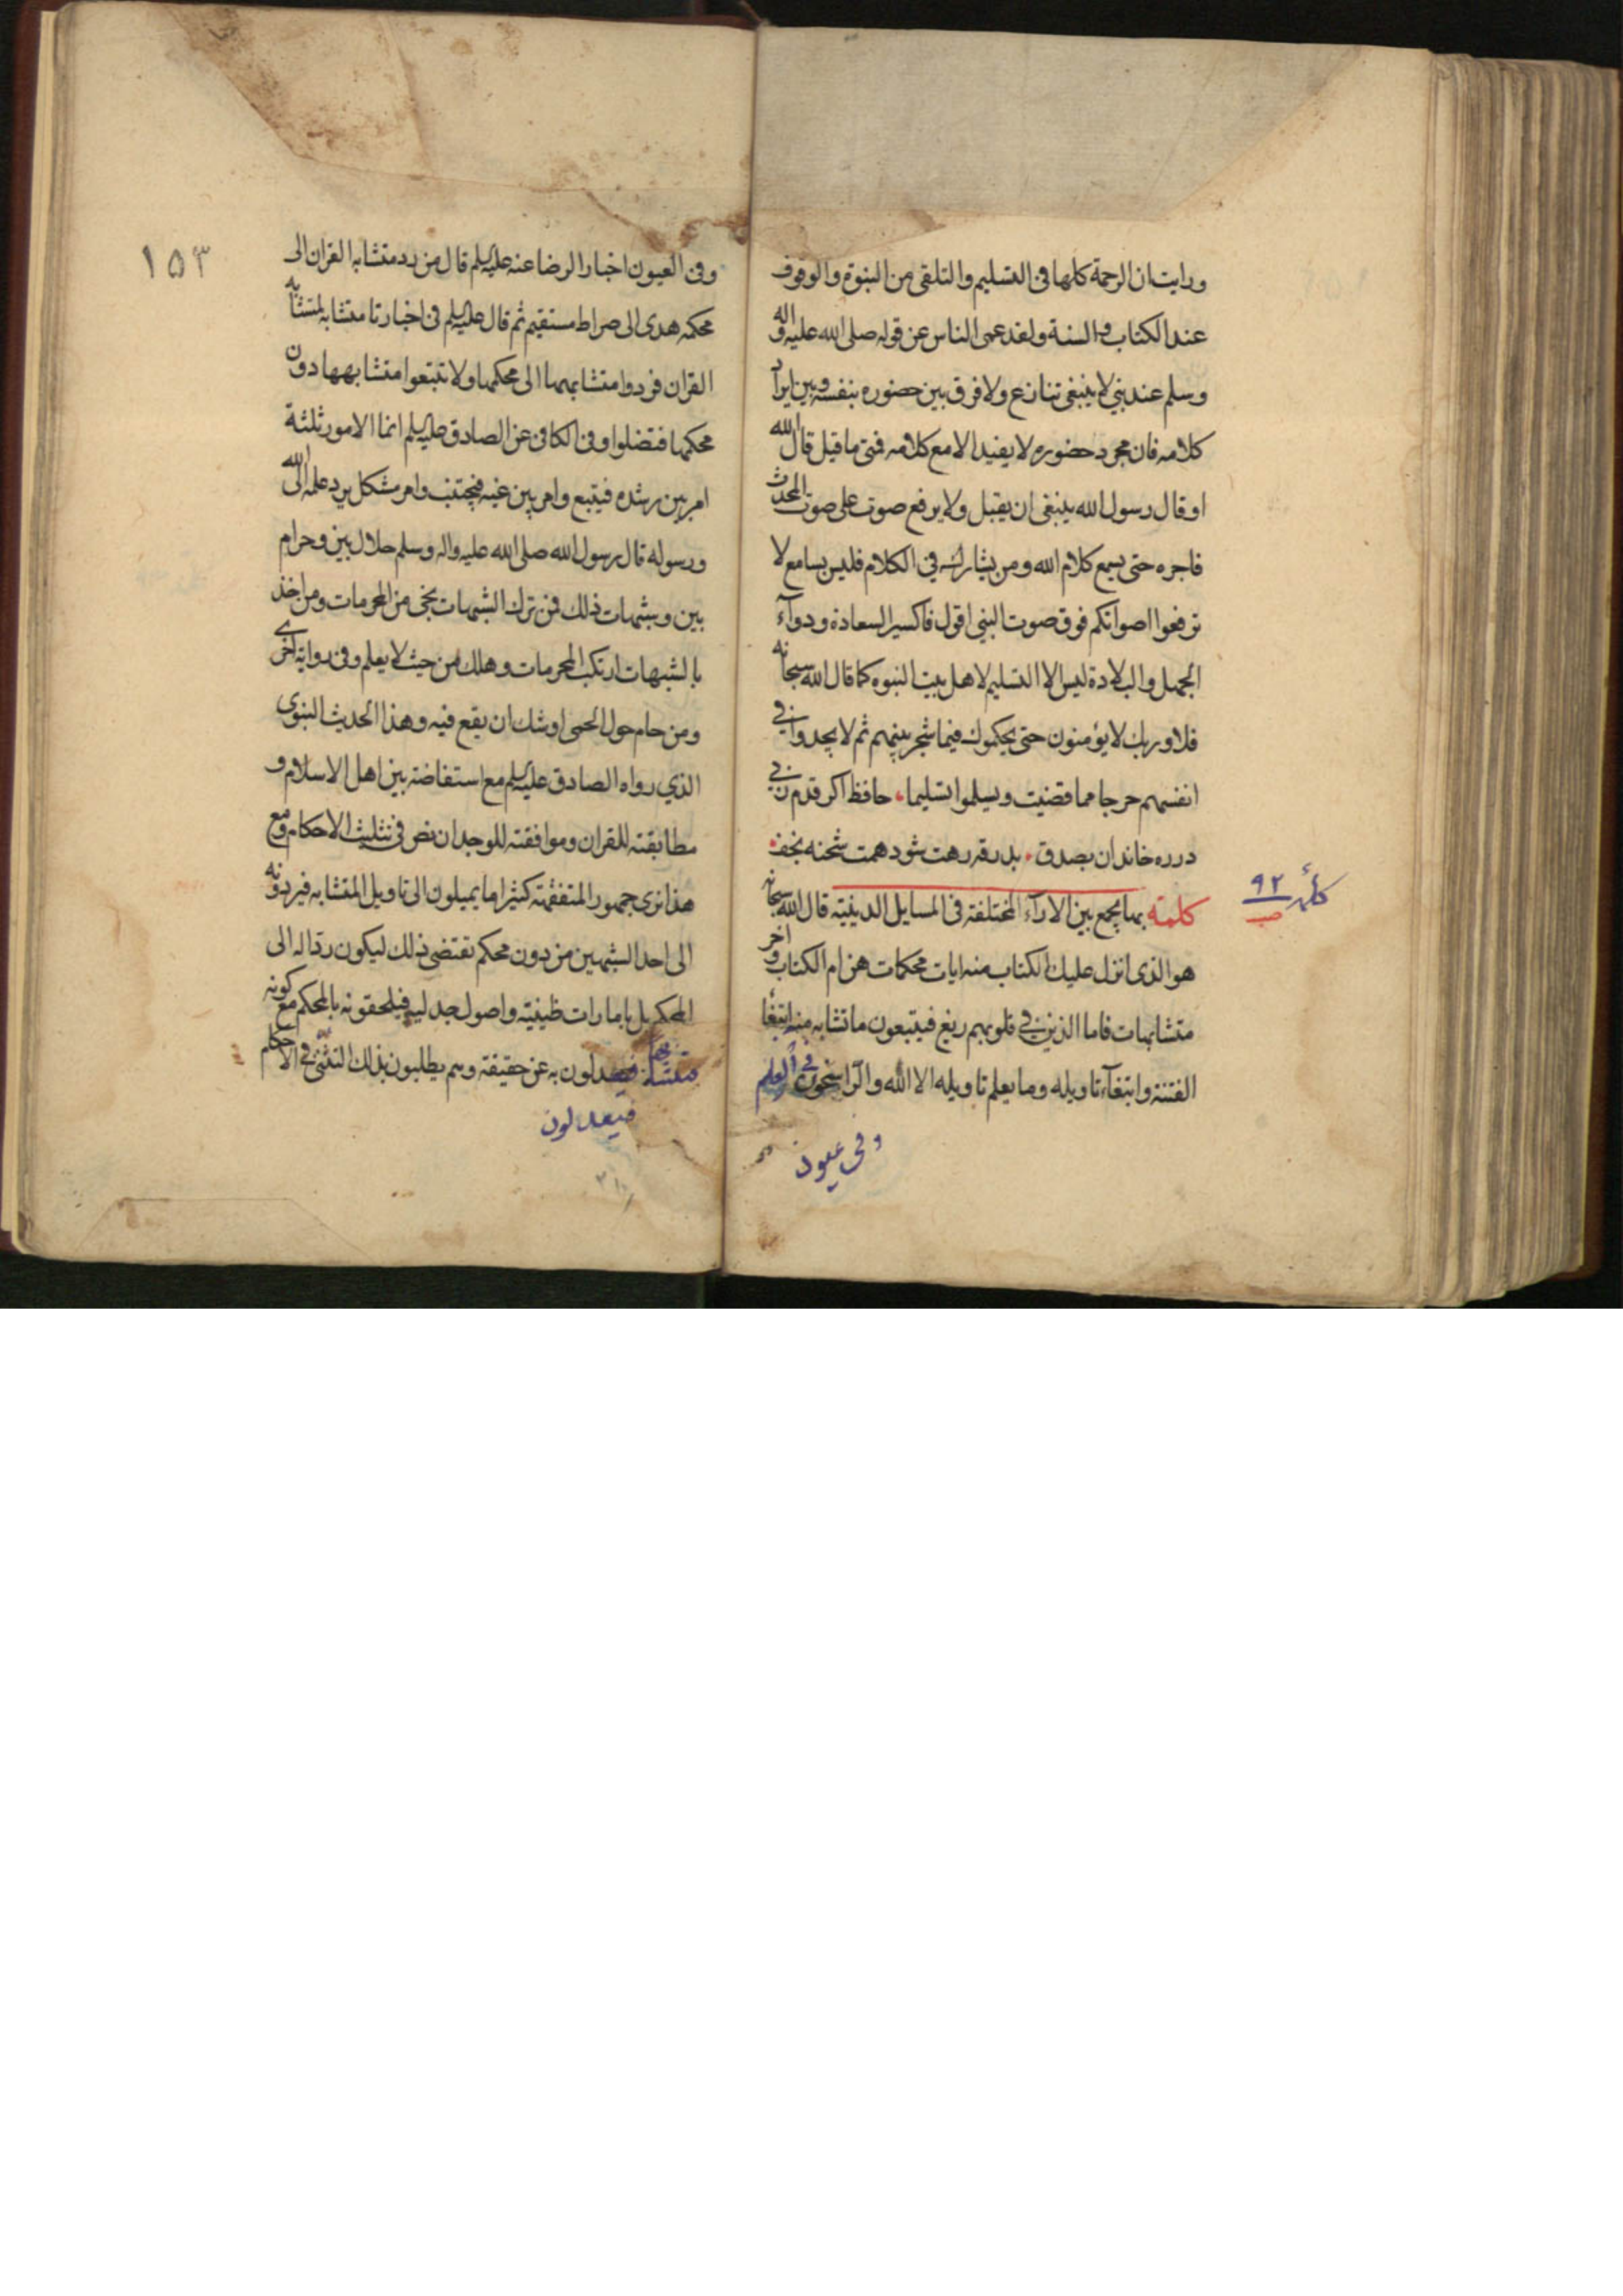 ورايت ان الرحمة كلها في التسليم والتلقي من النبوة والوقوف
عند الكتاب والسنة ولقد عمى الناس عن قوله صلى الله عليه واله
وسلم عند نبي لا ينبغي تنازع ولا فرق بين حضوره بنفسه وبين ايراد
كلامه فان مجرد حضوره لا يفيد الا مع كلامه فمتى ما قيل قال الله
او قال رسول الله ينبغي ان يقبل ولا يرفع صوت على صوت المحدث
فاجره حتى يسمع كلام الله ومن يشاركه في الكلام فليس بسامع لا
ترفعوا اصواتكم فوق صوت النبي اقول فاكسير السعادة ودواء
الجهل والبلادة ليس الا التسليم لاهل بيت النبوه كما قال الله سبحانه
فلا وربك لا يؤمنون حتى يحكموك فيما شجر بينهم ثم لا يجدوا في
انفسهم حرجا مما قضيت ويسلموا تسليما، حافظ اكر قدم زني
در ره خاندان بصدق، بدرقه رهت شود همت شحنه نجف
كلمة بها يجمع بين الاراء المختلفة في المسايل الدينية قال الله سبحانه
كلمه ٩٢
صب
هو الذي انزل عليك الكتاب منه ايات محكمات هن ام الكتاب واخر
متشابهات فاما الذين في قلوبهم زيغ فيتبعون ما تشابه منه ابتغاء
الفتنة وابتغاء تاويله وما يعلم تاويله الا الله والراسخون في العلم
وفي عيون
١٥٣
وفي العيون اخبار الرضا عنه عليه السلم قال من رد متشابه القران الى
محكمه هدى الى صراط مستقيم ثم قال عليه السلم في اخبارنا متشابه كمتشابه
القران فردوا متشابهها الى محكمها ولا تتبعوا متشابهها دون
محكمها فتضلوا وفي الكافي عن الصادق عليه السلم انما الامور ثلثة
امر بين رشده فيتبع وامر بين غيه فيجتنب وامر مشكل يرد علمه الى الله
ورسوله قال رسول الله صلى الله عليه واله وسلم حلال بين وحرام
بين وشبهات ذلك فمن ترك الشبهات نجى من المحرمات ومن اخذ
بالشبهات ارتكب المحرمات وهلك من حيث لا يعلم وفي رواية اخرى
ومن حام حول الحمى اوشك ان يقع فيه وهذا الحديث النبوي
الذي رواه الصادق عليه السلم مع استفاضة بين اهل الاسلام و
مطابقته للقران وموافقته للوجدان نص في تثليث الاحكام ومع
هذا نرى جمهور المتفقهة كثيرا ما يميلون الى تاويل المتشابه فيردونه
الى احد الشبهين من دون محكم تقتضي ذلك ليكون ردا له الى
المحكم بل بامارات ظنية واصول جدلية فيلحقونه بالمحكم مع كونه
متشابها فيعدلون به عن حقيقة وسم يطلبون بذلك التثني في الاحكام
فيعدلون